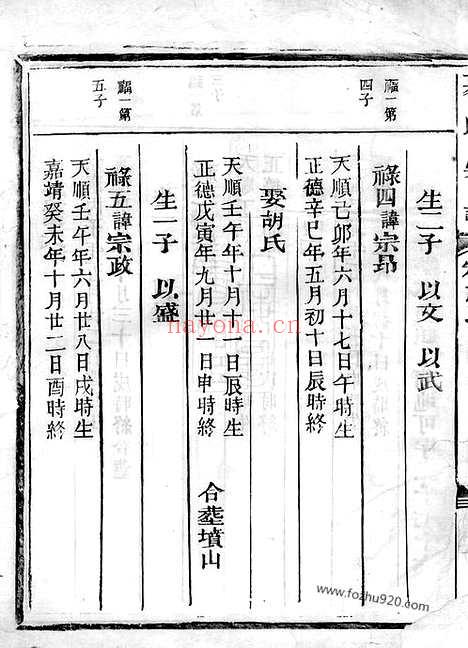 生二子 以文 以武
福一第四子
祿四諱宗昂
天順己卯年六月十七日午時生
正德辛巳年五月初十日辰時終
娶胡氏
天順壬午年十月十一日辰時生
正德戊寅年九月廿一日申時終
合塟墳山
生一子 以盛
福一第五子
祿五諱宗政
天順壬午年六月廿八日戌時生
嘉靖癸未年十月廿二日酉時終
hayona.cn
www.fozhu920.com